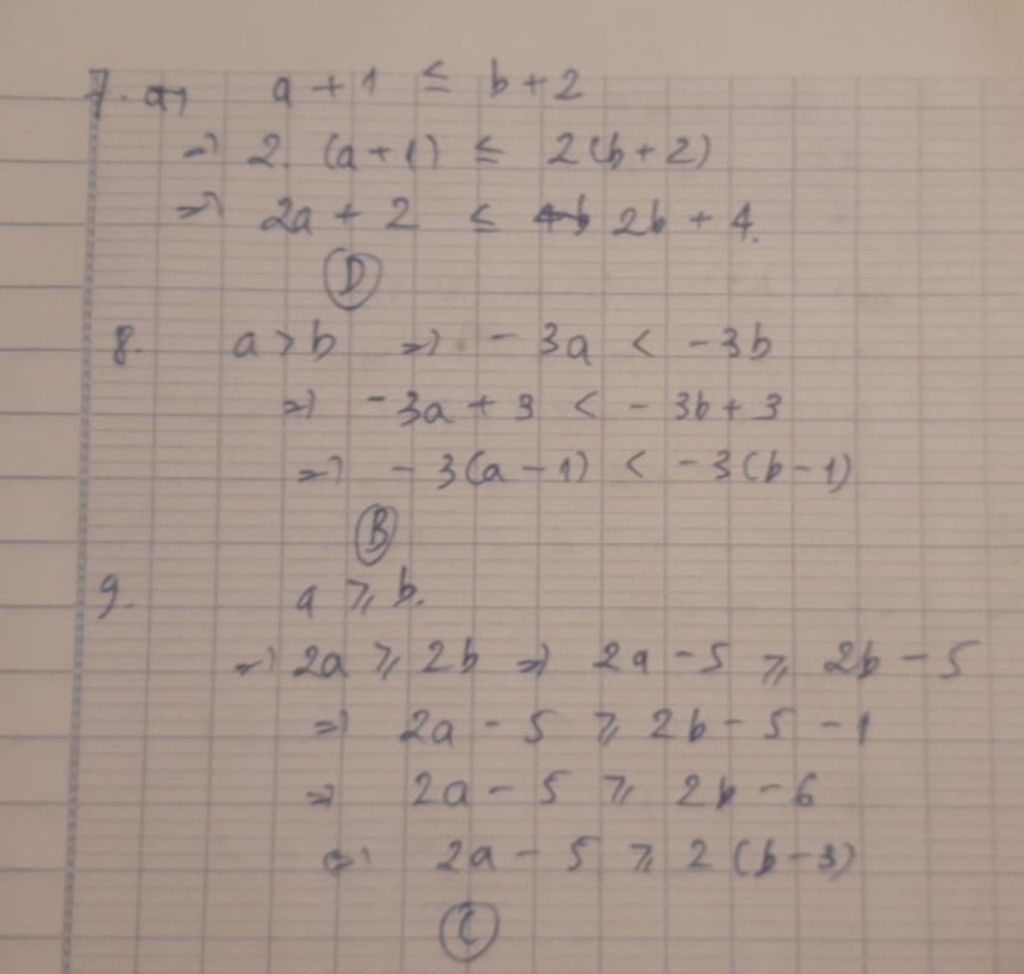 7. a, a + 1 ≤ b + 2
=> 2. (a + 1) ≤ 2(b + 2)
=> 2a + 2 ≤ 2b + 4.
D
8. a > b => - 3a < - 3b
=> - 3a + 3 < - 3b + 3
=> - 3(a - 1) < - 3(b - 1)
B
9. a ≥ b.
=> 2a ≥ 2b => 2a - 5 ≥ 2b - 5
=> 2a - 5 ≥ 2b - 5 - 1
=> 2a - 5 ≥ 2b - 6
=> 2a - 5 ≥ 2 (b - 3)
C